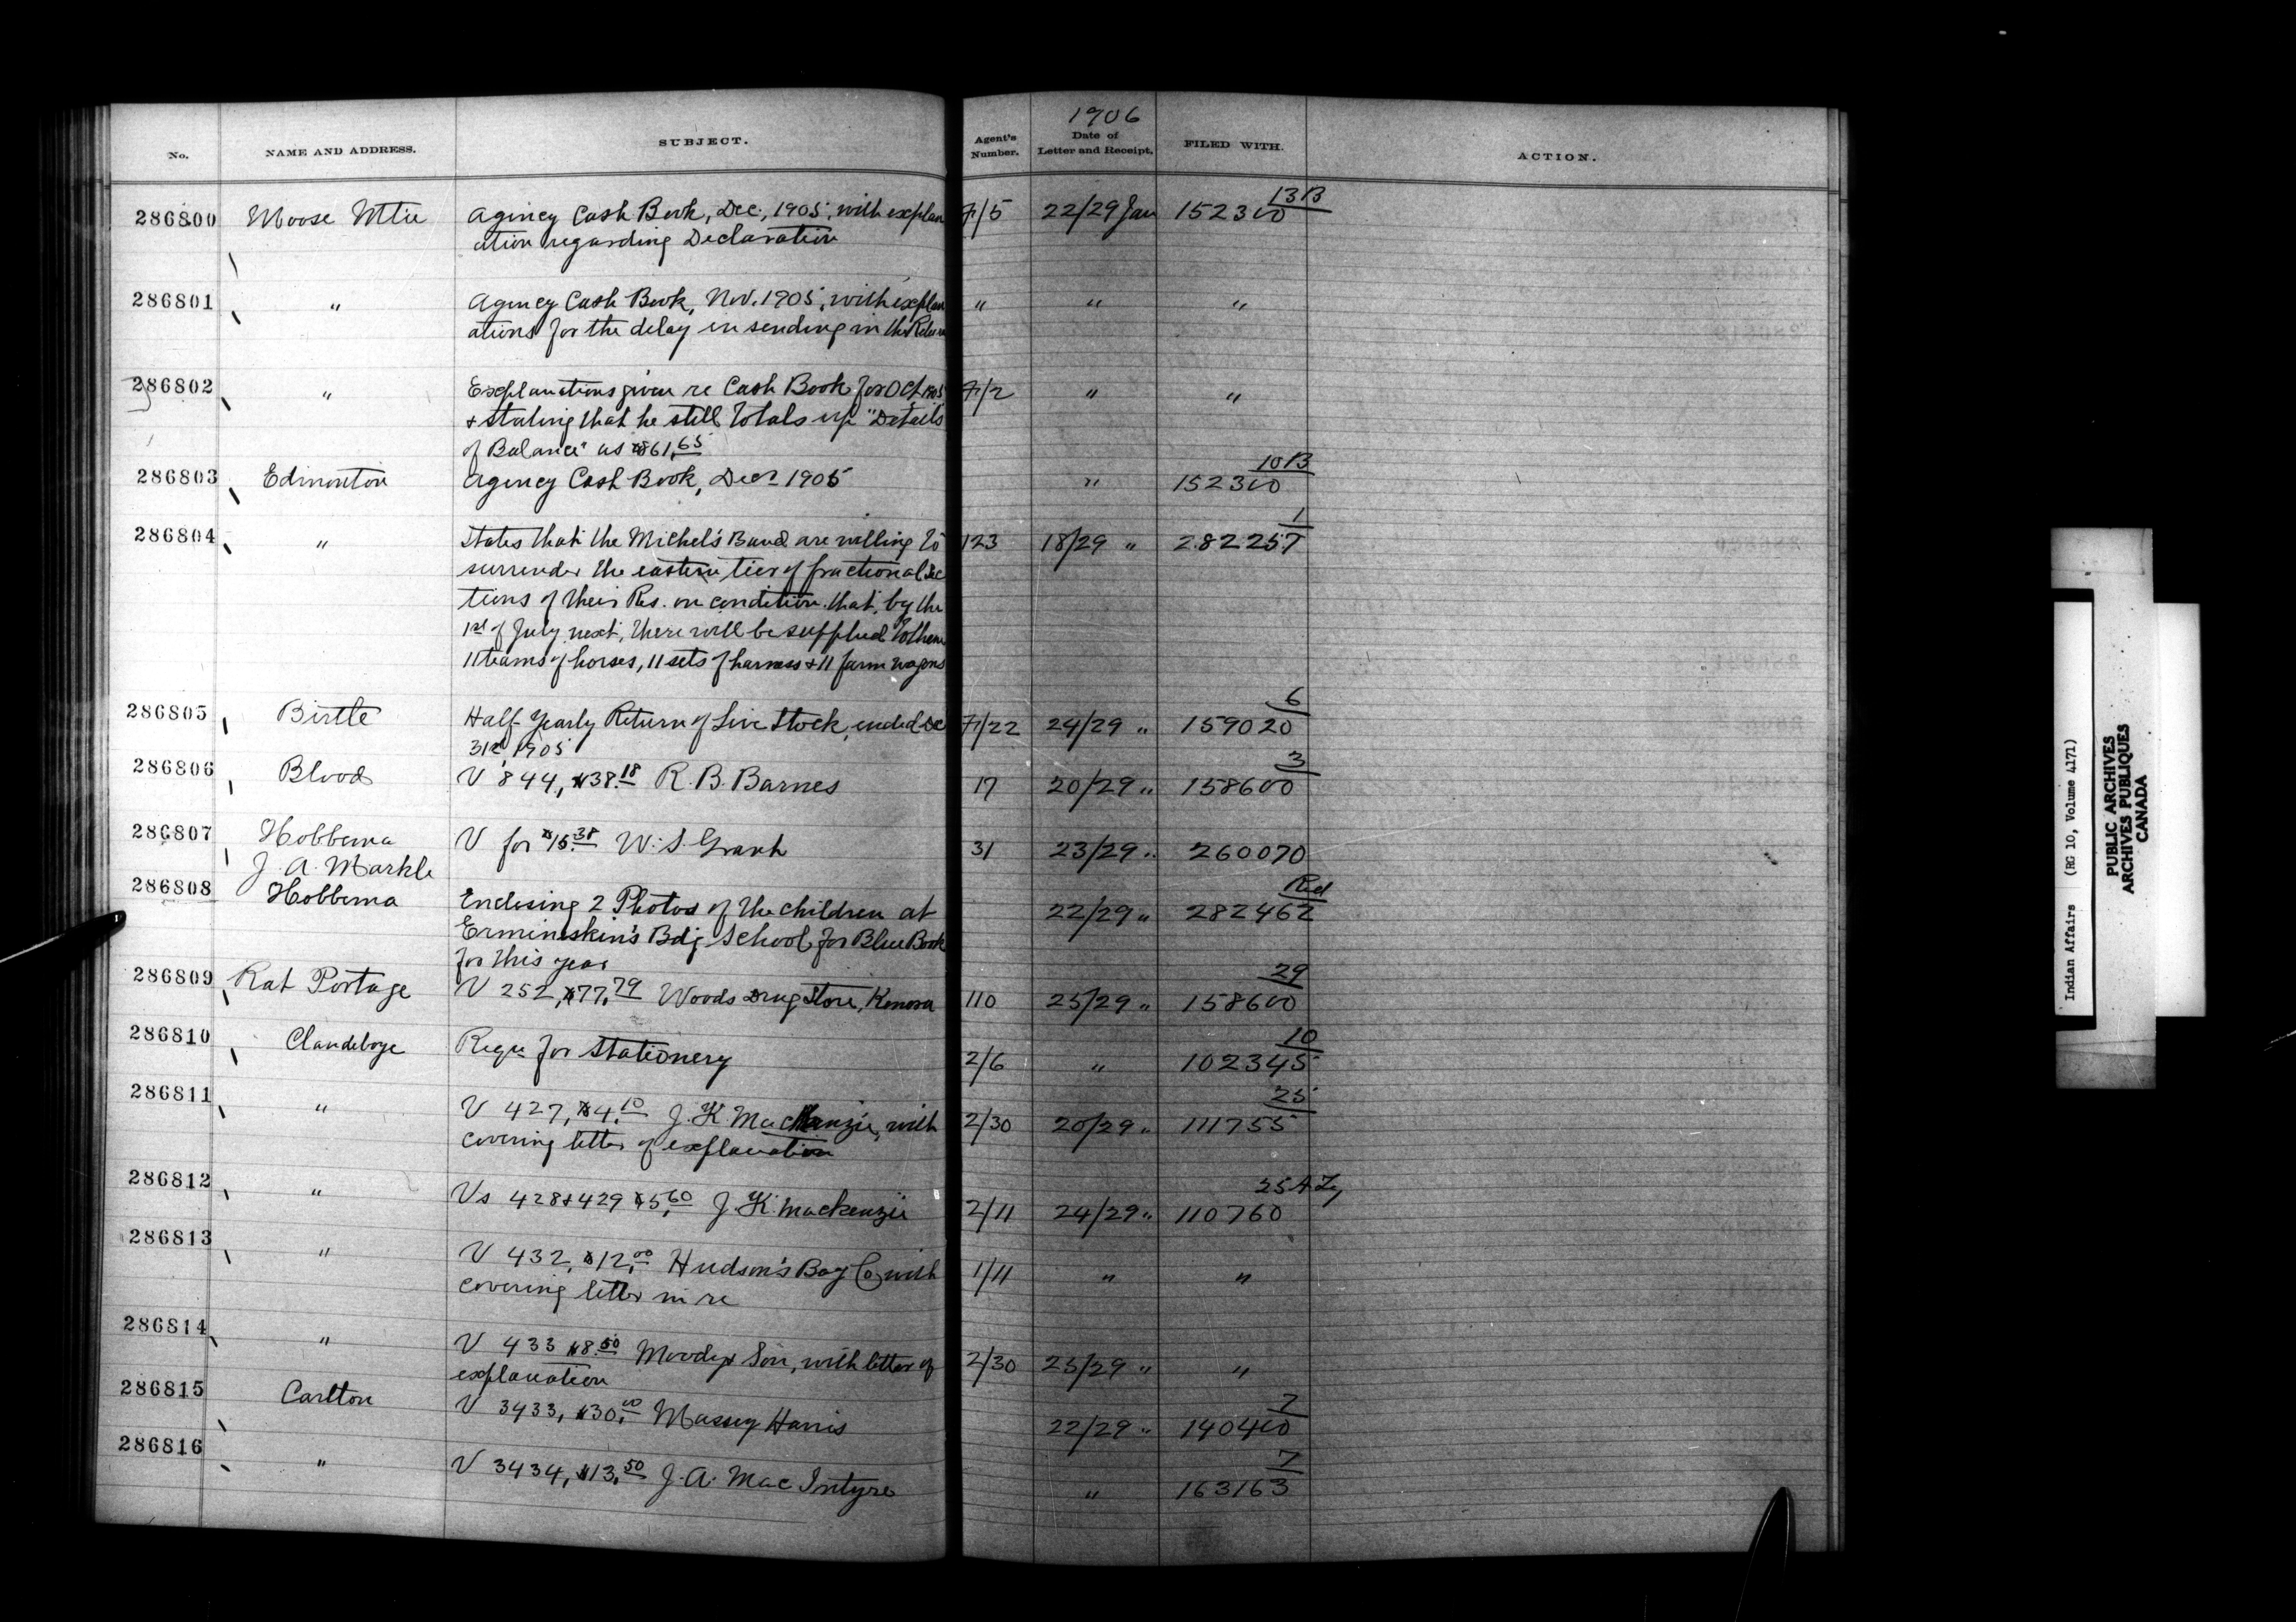 1906
No. NAME AND ADDRESS. SUBJECT. Agent's Number. Date of Letter and Receipt. FILED WITH. ACTION.
13B
286800 Moose Mtn Agency Cash Book, Dec., 1905, with explan 7/5 22/29 Jan 152300
ation regarding Declaration
286801 " Agency Cash Book, Nov. 1905, with explan " " "
ations for the delay in sending in the Return
286802 " Explanations given re Cash Book for Oct 1905 7/2 " "
& stating that he still totals up "Details
of Balance" as $861.65
10B
286803 Edmonton Agency Cash Book, Decr 1905 " 152300
1
286804 " States that the Michel's Band are willing to 123 18/29 " 282257
surrender the eastern tier of fractional Sec
tions of their Res. on condition that, by the
1st of July next, there will be supplied to them
11 teams of horses, 11 sets of harness & 11 farm wagons
6
286805 Birtle Half Yearly Return of Live Stock, ended Dec 7/22 24/29 " 159020
31st, 1905
3
286806 Blood V 844, $38.18 R. B. Barnes 17 20/29 " 158600
286807 Hobbema V for $15.38 W. S. Grant 31 23/29 " 260070
J. A. Markle
Red
286808 Hobbema Enclosing 2 Photos of the children at 22/29 " 282462
Ermineskin's Bdg School for Blue Book
for this year
29
286809 Rat Portage V 252, $77.79 Woods Drug Store, Kenora 110 25/29 " 158600
10
286810 Clandeboye Reqn for Stationery 2/6 " 102345
25
286811 " V 427, $4.10 J. K. MacKenzie, with 2/30 20/29 " 111755
covering letter of explanation
25
286812 " Vs 428 & 429 $5.60 J. K. Mackenzie 2/11 24/29 " 110760
286813 " V 432, $12.00 Hudson's Bay Co with 1/11 " "
covering letter in re
286814 " V 433 $8.50 Moody & Son, with letter of 2/30 25/29 " "
explanation
7
286815 Carlton V 3433, $30.00 Massey Harris 22/29 " 140400
7
286816 " V 3434, $13.50 J. A. Mac Intyre " 163163
Indian Affairs (RG 10, Volume 4171)
PUBLIC ARCHIVES
ARCHIVES PUBLIQUES
CANADA